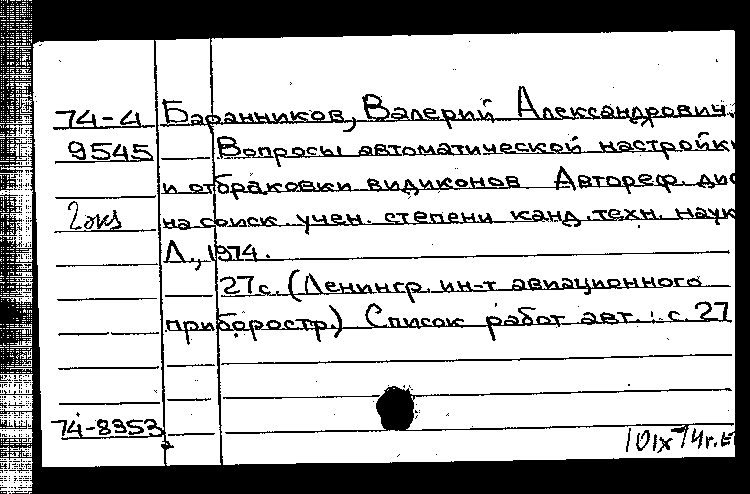 74-4 Баранников, Валерий Александрович.
9545 Вопросы автоматической настройки
и отбраковки видиконов. Автореф. дис
2 экз на соиск. учен. степени канд. техн. наук
Л., 1974.
27 с. (Ленингр. ин-т авиационного
приборостр.) Список работ авт.: с. 27
74-8353
10 IX 74 г.